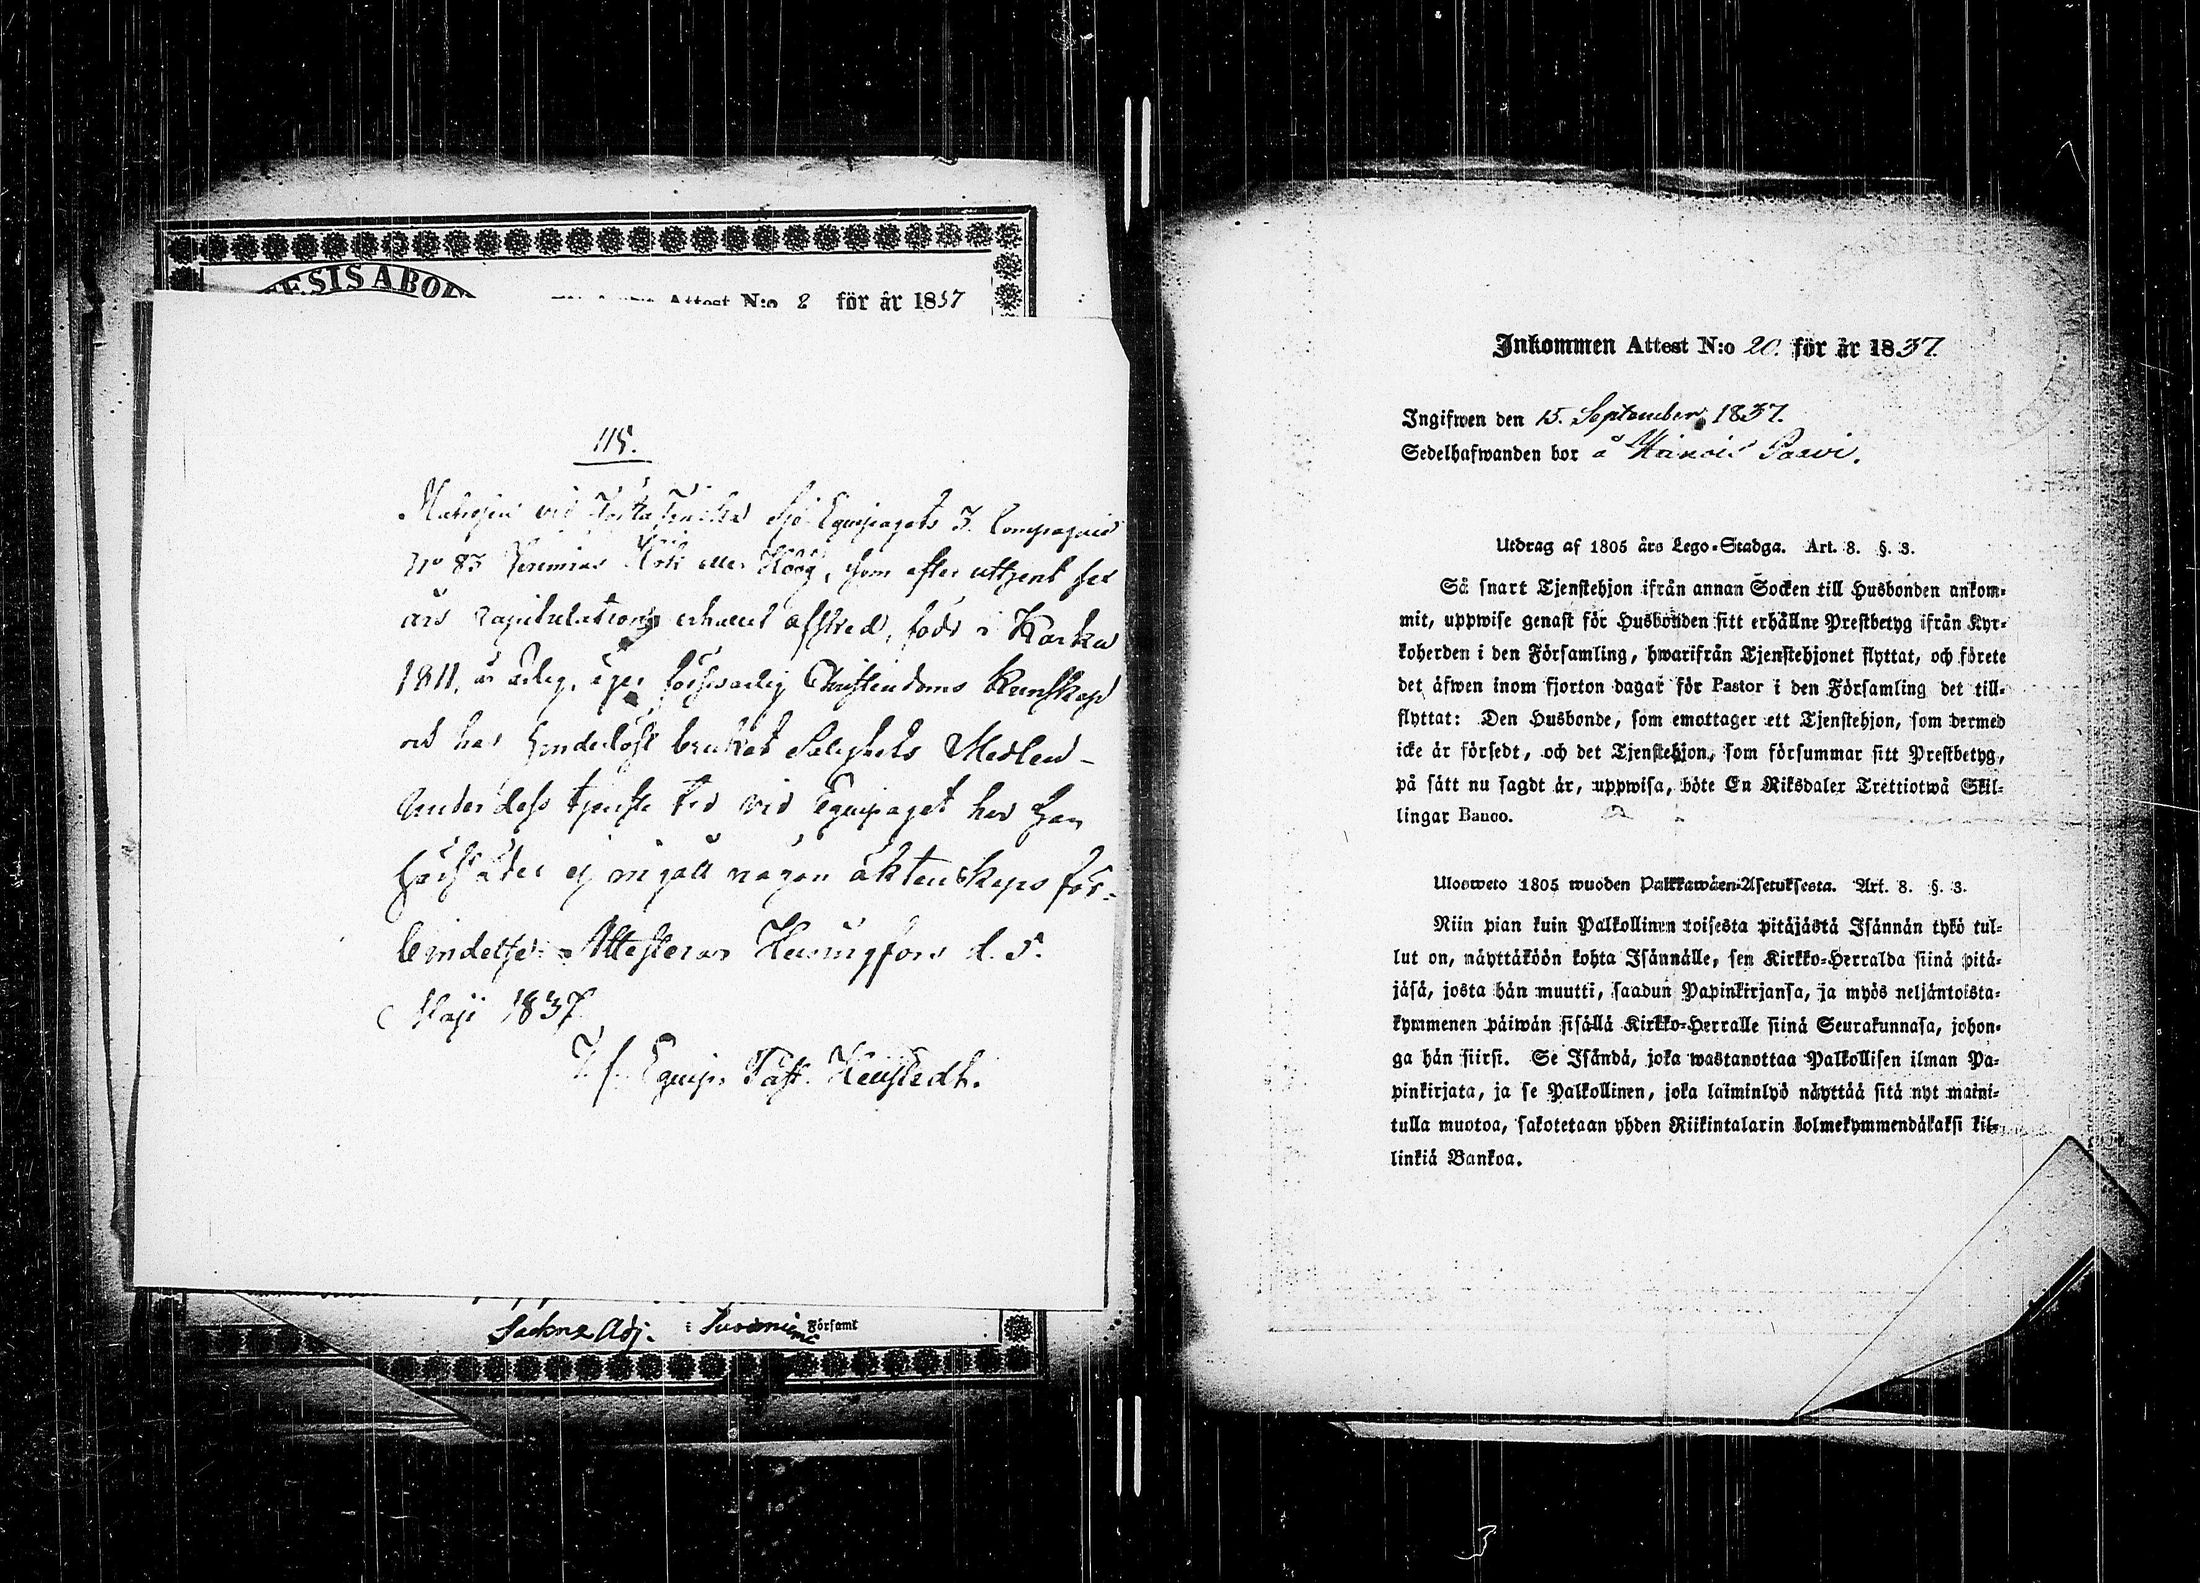 ESIS ABO
Attest N:o 2 för år 1837
115.
Matrosen vid Första Finska Sjö Equipagets 3. Compagnie
No 83 Jeremias eller Höög, som efter uttjent sex
års Capitulation erhållit afsked, född i Karku
1811, är ärlig, äger försvarlig Christendoms Kunskap
och har hinderlöst brukat Salighets Medlen –
Under dess tjenste tid vid Equipaget har han
härstädes ej ingått någon äktenskaps för-
bindelse. Attesteras Helsingfors d. 5.
Maji 1837
Equip. Past.
Sockne Adj. i Suoniemi Församl
Inkommen Attest N:o 20. för år 1837.
Ingifwen den 15. September 1837.
Sedelhafwanden bor å
Utdrag af 1805 års Lego-Stadga. Art. 8. §. 3.
Så snart Tjenstehjon ifrån annan Socken till Husbonden ankom-
mit, uppwise genast för Husbonden sitt erhållne Prestbetyg ifrån Kyr-
koherden i den Församling, hwarifrån Tjenstehjonet flyttat, och förete
det äfwen inom fjorton dagar för Pastor i den Församling det till-
flyttat: Den Husbonde, som emottager ett Tjenstehjon, som dermed
icke är försedt, och det Tjenstehjon, som försummar sitt Prestbetyg,
på sätt nu sagdt är, uppwisa, böte En Riksdaler Trettiotwå Skil-
lingar Banco.
Ulosweto 1805 wuoden Palkkawäen-Asetuksesta. Art. 8. §. 3.
Niin pian kuin Palkollinen toisesta pitäjästä Isännän tykö tul-
lut on, näyttäköön kohta Isännälle, sen Kirkko-Herralda siinä pitä-
jäsä, josta hän muutti, saadun Papinkirjansa, ja myös neljäntoista-
kymmenen päiwän sisällä Kirkko-Herralle siinä Seurakunnasa, johon-
ga hän siirsi. Se Isändä, joka wastanottaa Palkollisen ilman Pa-
pinkirjata, ja se Palkollinen, joka laiminlyö näyttää sitä nyt maini-
tulla muotoa, sakotetaan yhden Riikintalarin kolmekymmendäkaksi kil-
linkiä Bankoa.
3